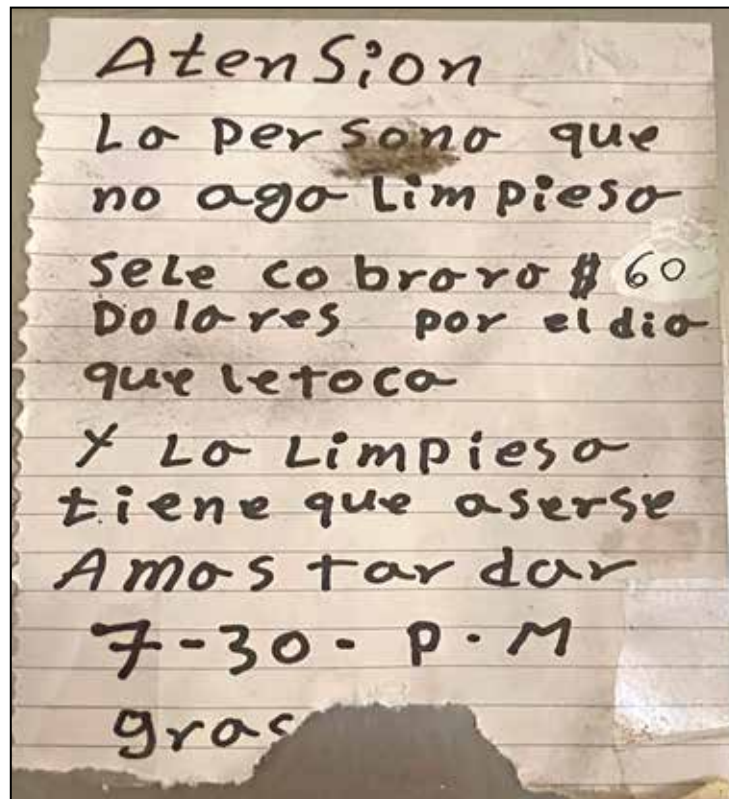 Atension
La persona que
no aga Limpiesa
sele cobrara $60
Dolares por el dia
que letoca
Y La Limpiesa
tiene que aserse
Amas tardar
7-30- P.M
gras